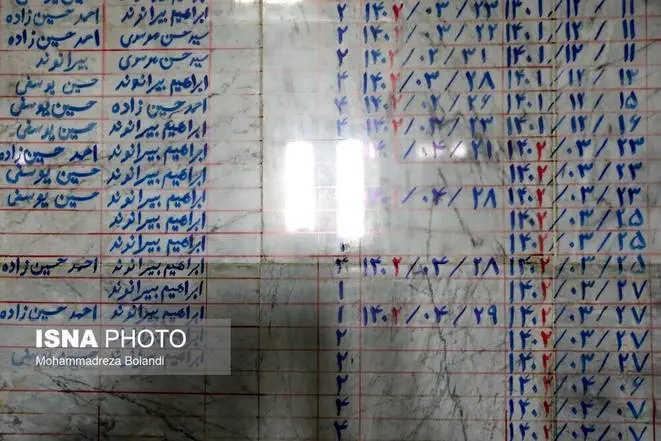 ۱۴۰۱/۱۲/۱۱ ۱۴۰۲/۰۳/۲۳ ۲ ابراهیم بیرانوند احمد حسین زاده
۱۴۰۱/۱۲/۱۱ ۱۴۰۲/۰۳/۲۲ ۲ سید حسن موسوی احمد حسین زاده
۱۴۰۱/۱۲/۱۱ ۱۴۰۲/۰۳/۳۱ ۲ سید حسن موسوی بیرانوند
۱۴۰۱/۱۲/۱۳ ۱۴۰۲/۰۳/۲۸ ۴ ابراهیم بیرانوند حسین یوسفی
۱۴۰۱/۱۲/۱۵ ۱۴۰۲/۰۲/۲۶ ۴ احمد حسین زاده حسین یوسفی
۱۴۰۱/۱۲/۱۶ ۱۴۰۲/۰۳/۲۳ ۴ ابراهیم بیرانوند حسین یوسفی
۱۴۰۲/۰۳/۲۳ /۰۴/۲۱ ابراهیم بیرانوند احمد حسین زاده
۱۴۰۲/۰۳/۲۳ ابراهیم بیرانوند حسین یوسفی
۱۴۰۲/۰۳/۲۳ /۰۴/۲۸ ابراهیم بیرانوند حسین یوسفی
۱۴۰۲/۰۳/۲۵ ابراهیم بیرانوند
۱۴۰۲/۰۳/۲۵ ۲ ابراهیم بیرانوند
۱۴۰۲/۰۳/۲۵ ۱۴۰۲/۰۴/۲۸ ۴ ابراهیم بیرانوند احمد حسین زاده
۱۴۰۲/۰۳/۲۷ ۱ ابراهیم بیرانوند
۱۴۰۲/۰۳/۲۷ ۱۴۰۲/۰۴/۲۹ ۱ ابراهیم بیرانوند احمد حسین زاده
۱۴۰۲/۰۳/۲۷ ۲
۱۴۰۲/۰۳/۲۷ ۲
۱۴۰۲/۰۴/۰۶ ۲
۱۴۰۲/۰۴/۰۷ ۴
۱۴۰۲/۰۴/۰۷ ۴
ISNA PHOTO
Mohammadreza Bolandi